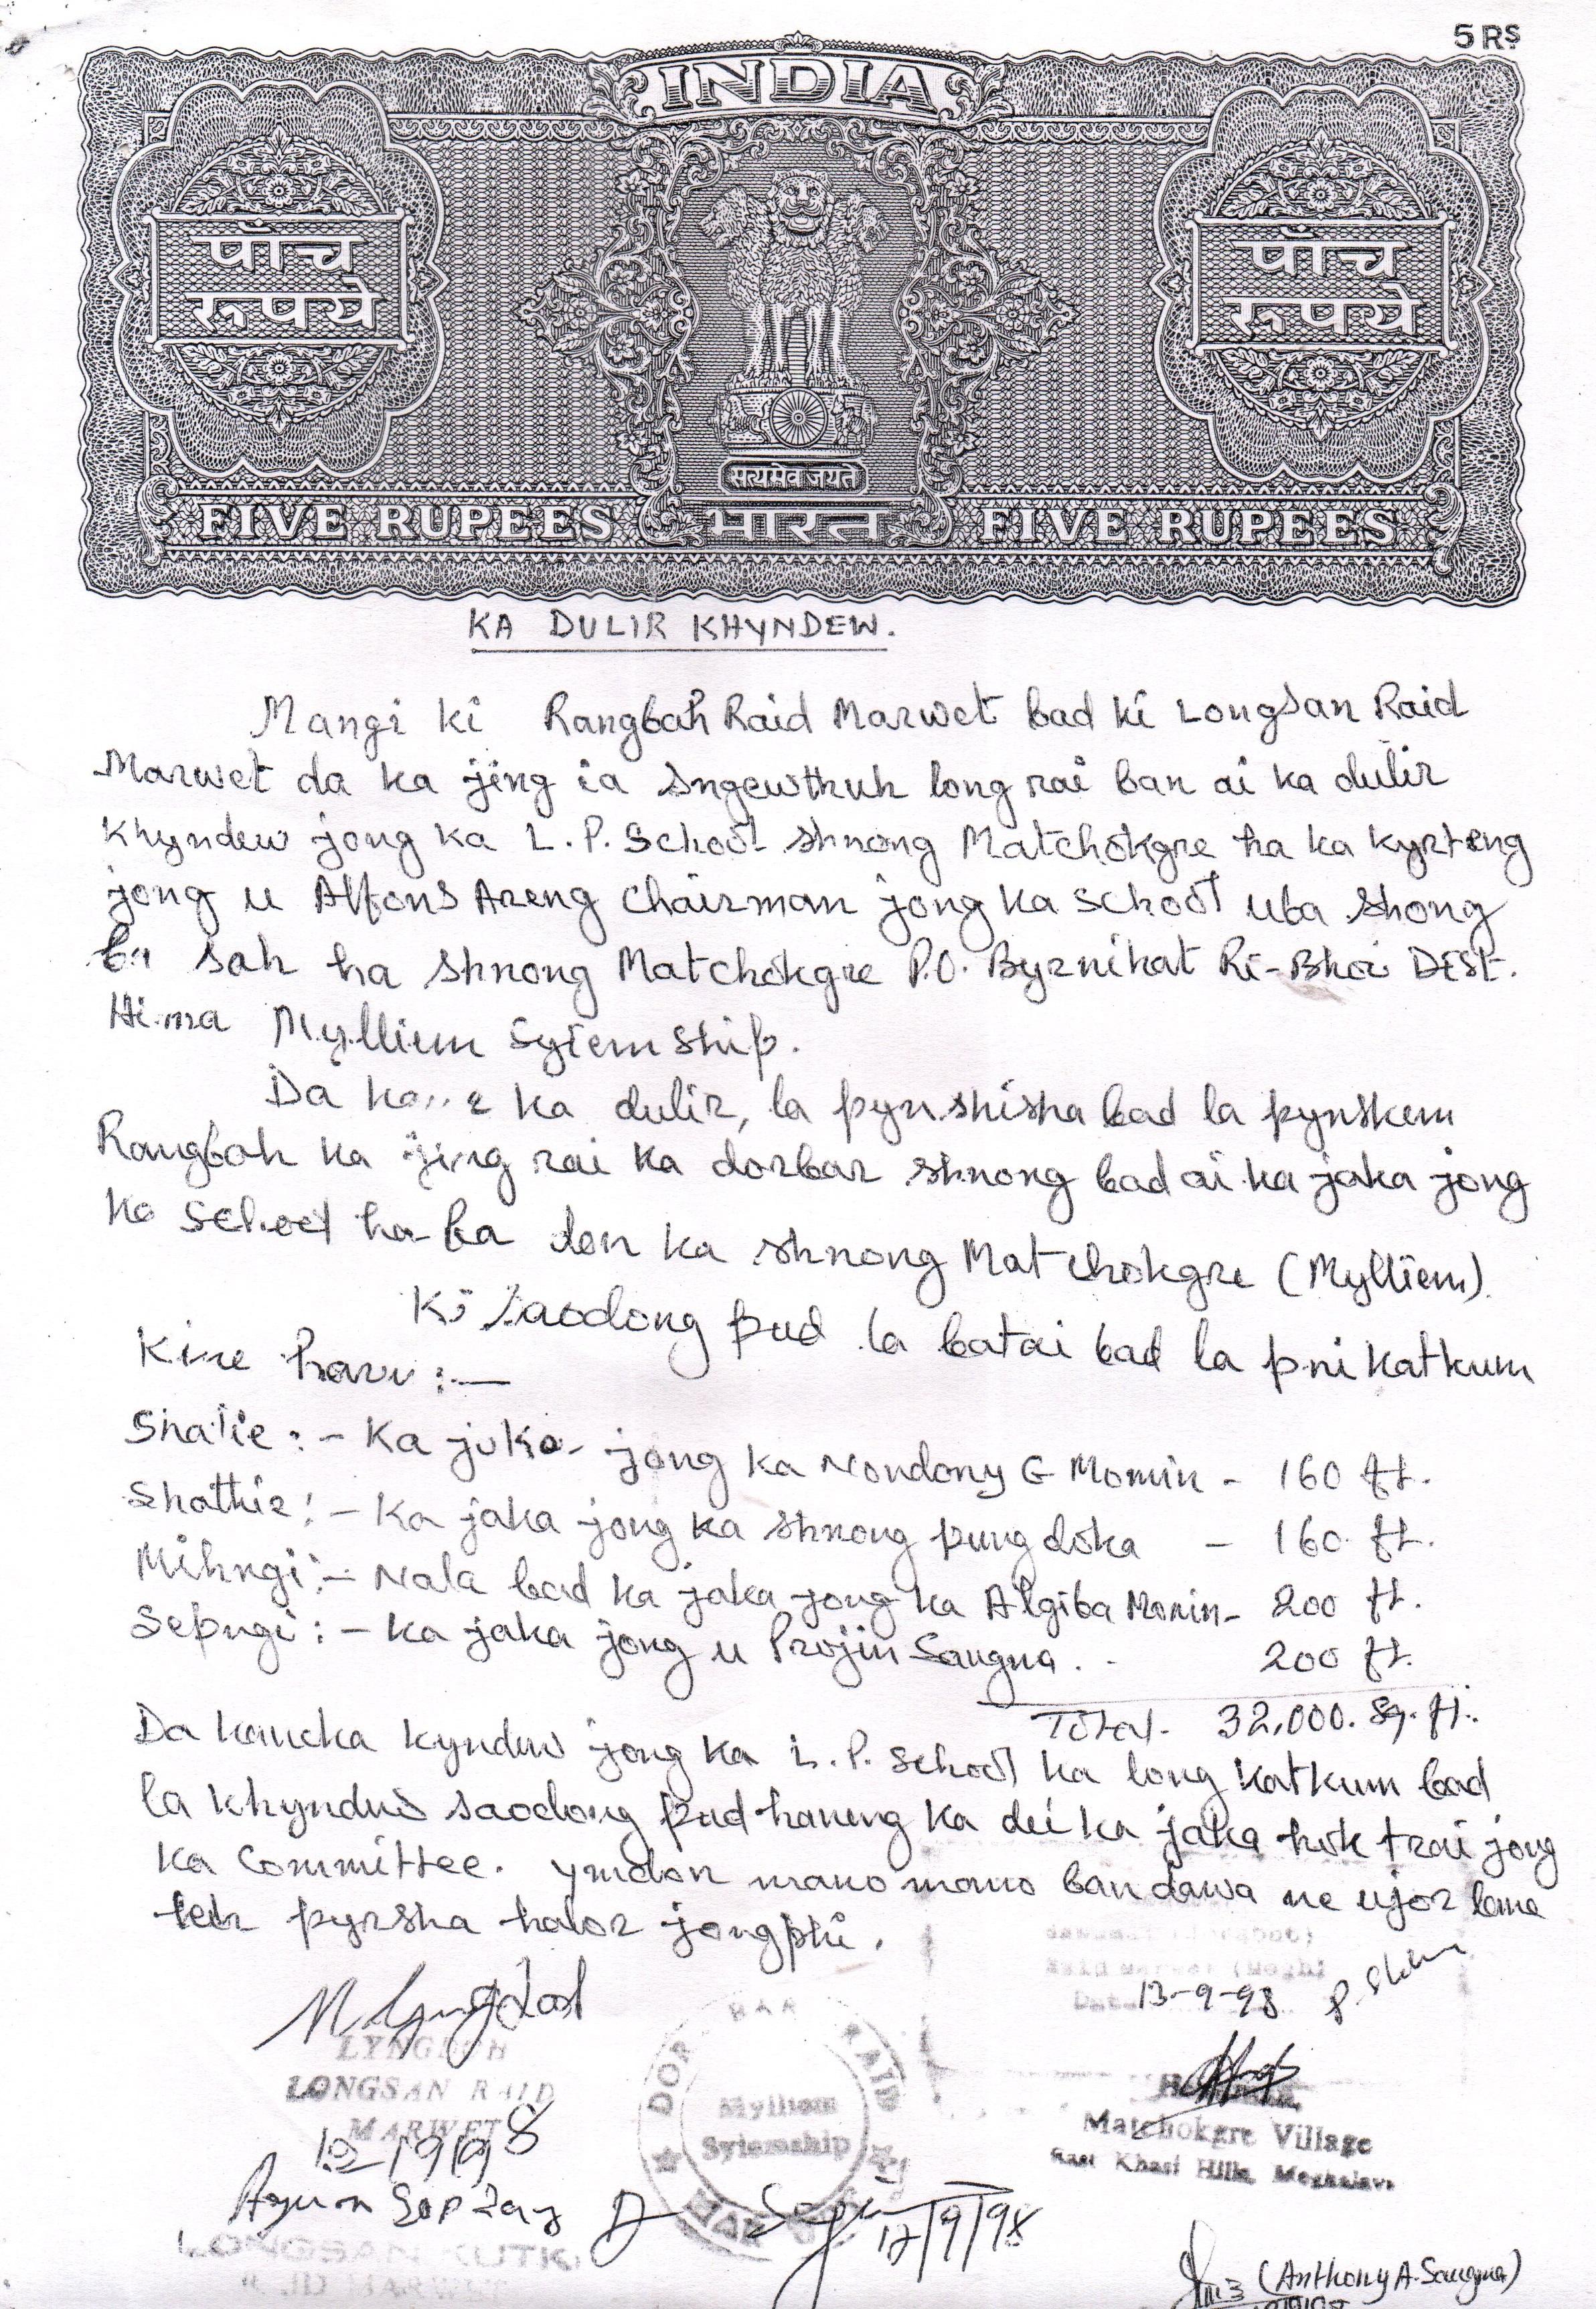 5 RS
INDIA
पाँच
रूपये
पाँच
रूपये
सत्यमेव जयते
FIVE RUPEES भारत FIVE RUPEES
KA DULIR KHYNDEW.
Mangi ki Rangbah Raid Marwet bad ki Longsan Raid
Marwet da ka jing ia sngewthuh long rai ban ai ka dulir
Khyndew jong ka L.P. School shnong Matchokgre ha ka kyrteng
jong u Alfons Areng Chairman jong ka School uba shong
ba sah ha shnong Matchokgre P.O. Byrnihat Ri-Bhoi DIST.
Hima Mylliem Syiemship.
Da ka ka dulir, la pynshisha bad la pynskhem
Rangbah ka jing rai ka dorbar shnong bad ai ka jaka jong
ka School ha-ba don ka shnong Matchokgre (Mylliem).
Ki saodong pud la batai bad la pni katkum
Kine harum :—
Shatie : - Ka jaka jong ka Nondony G Momin - 160 ft.
Shathie : - Ka jaka jong ka shnong pungdoka - 160 ft.
Mihngi : - Nala bad ka jaka jong ka Algiba Momin - 200 ft.
Sepngi : - Ka jaka jong u Projin Sangma . - 200 ft.
Total - 32,000. Sq. ft.
Da kane ka kyndew jong ka L.P. School ka long katkum bad
la khyndew saodong pud haneng ka dei ka jaka hok trai jong
ka Committee. ymdon mano mano ban dawa ne ujor lane
leh pyrsha halor jongphi.
13-9-98
LYNGDOH
LONGSAN RAID
MARWET
12/9/98
DORBAR RAID
Mylliem
Syiemship
12/9/98
Matchokgre Village
East Khasi Hills, Meghalaya
LONGSAN
RAID MARWET
(Anthony A. Sangma)